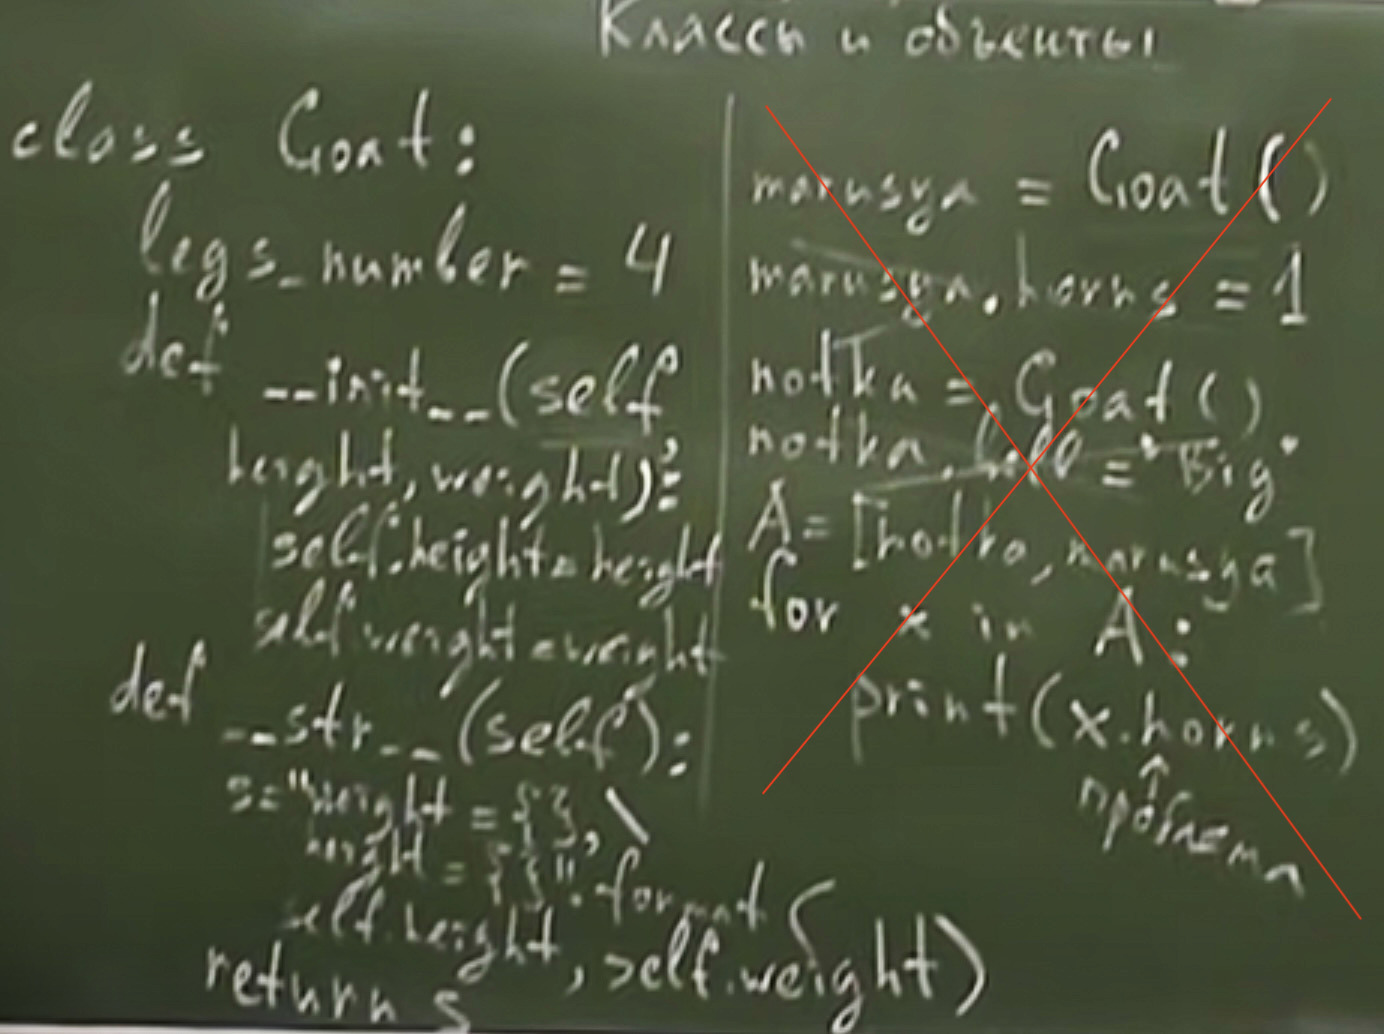 Классы и объекты
class Goat:
legs_number = 4
def __init__(self,
height, weight):
self.height = height
self.weight = weight
def __str__(self):
s="weight = {}, \
height = {}".format(
self.height, self.weight)
return s
marusya = Goat()
marusya.horns = 1
notka = Goat()
notka. = "Big"
A = [notka, marusya]
for x in A:
print(x.horns)
проблема